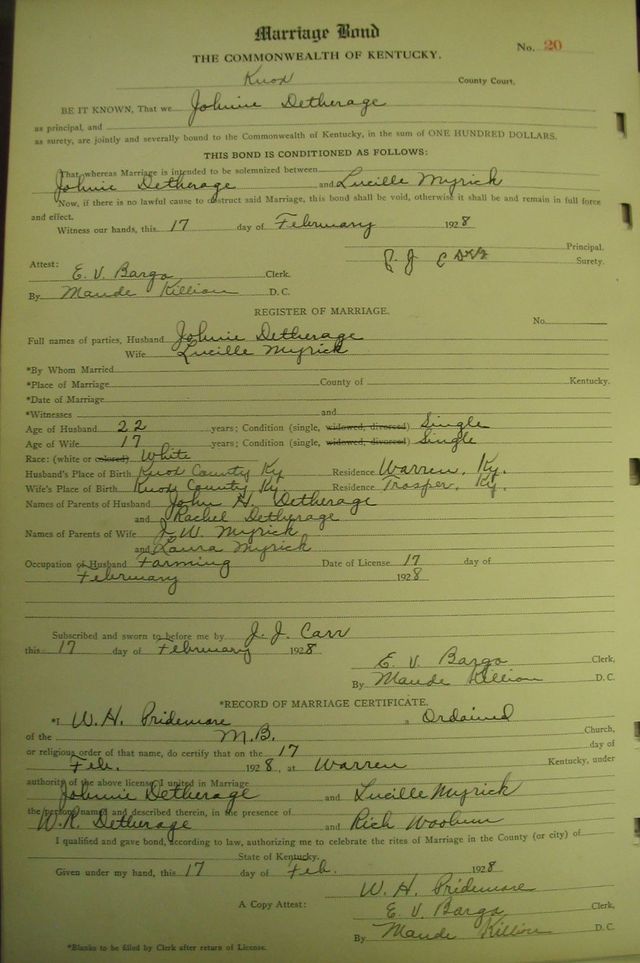 Marriage Bond
No. 20
THE COMMONWEALTH OF KENTUCKY.
Knox County Court.
BE IT KNOWN, That we Johnie Detherage
as principal, and
as surety, are jointly and severally bound to the Commonwealth of Kentucky, in the sum of ONE HUNDRED DOLLARS.
THIS BOND IS CONDITIONED AS FOLLOWS:
That whereas Marriage is intended to be solemnized between
Johnie Detherage and Lucille Myrick
Now, if there is no lawful cause to obstruct said Marriage, this bond shall be void, otherwise it shall be and remain in full force
and effect.
Witness our hands, this 17 day of February 1928
Principal.
J. J. Surety.
Attest:
E. V. Bargo Clerk.
By Maude Killion D. C.
REGISTER OF MARRIAGE.
No.
Full names of parties, Husband Johnie Detherage
Wife Lucille Myrick
*By Whom Married
*Place of Marriage County of Kentucky.
*Date of Marriage
*Witnesses and
Age of Husband 22 years; Condition (single, widowed, divorced) Single
Age of Wife 17 years; Condition (single, widowed, divorced) Single
Race: (white or colored) White
Husband's Place of Birth Knox County Ky Residence Warren, Ky.
Wife's Place of Birth Knox County Ky Residence Trosper, Ky.
Names of Parents of Husband John H. Detherage
and Rachel Detherage
Names of Parents of Wife J. W. Myrick
and Laura Myrick
Occupation of Husband Farming Date of License 17 day of
February 1928
Subscribed and sworn to before me by J. J. Carr
this 17 day of February 1928
E. V. Bargo Clerk,
By Maude Killion D. C.
*RECORD OF MARRIAGE CERTIFICATE.
*I W. H. Pridemore a Ordained
of the M.B. Church,
or religious order of that name, do certify that on the 17 day of
Feb. 1928, at Warren Kentucky, under
authority of the above license, I united in Marriage
Johnie Detherage and Lucille Myrick
the persons named and described therein, in the presence of
W. R. Detherage and Rich Woolum
I qualified and gave bond, according to law, authorizing me to celebrate the rites of Marriage in the County (or city) of
State of Kentucky.
Given under my hand, this 17 day of Feb. 1928
W. H. Pridemore
A Copy Attest: E. V. Bargo Clerk,
By Maude Killion D. C.
*Blanks to be filled by Clerk after return of License.